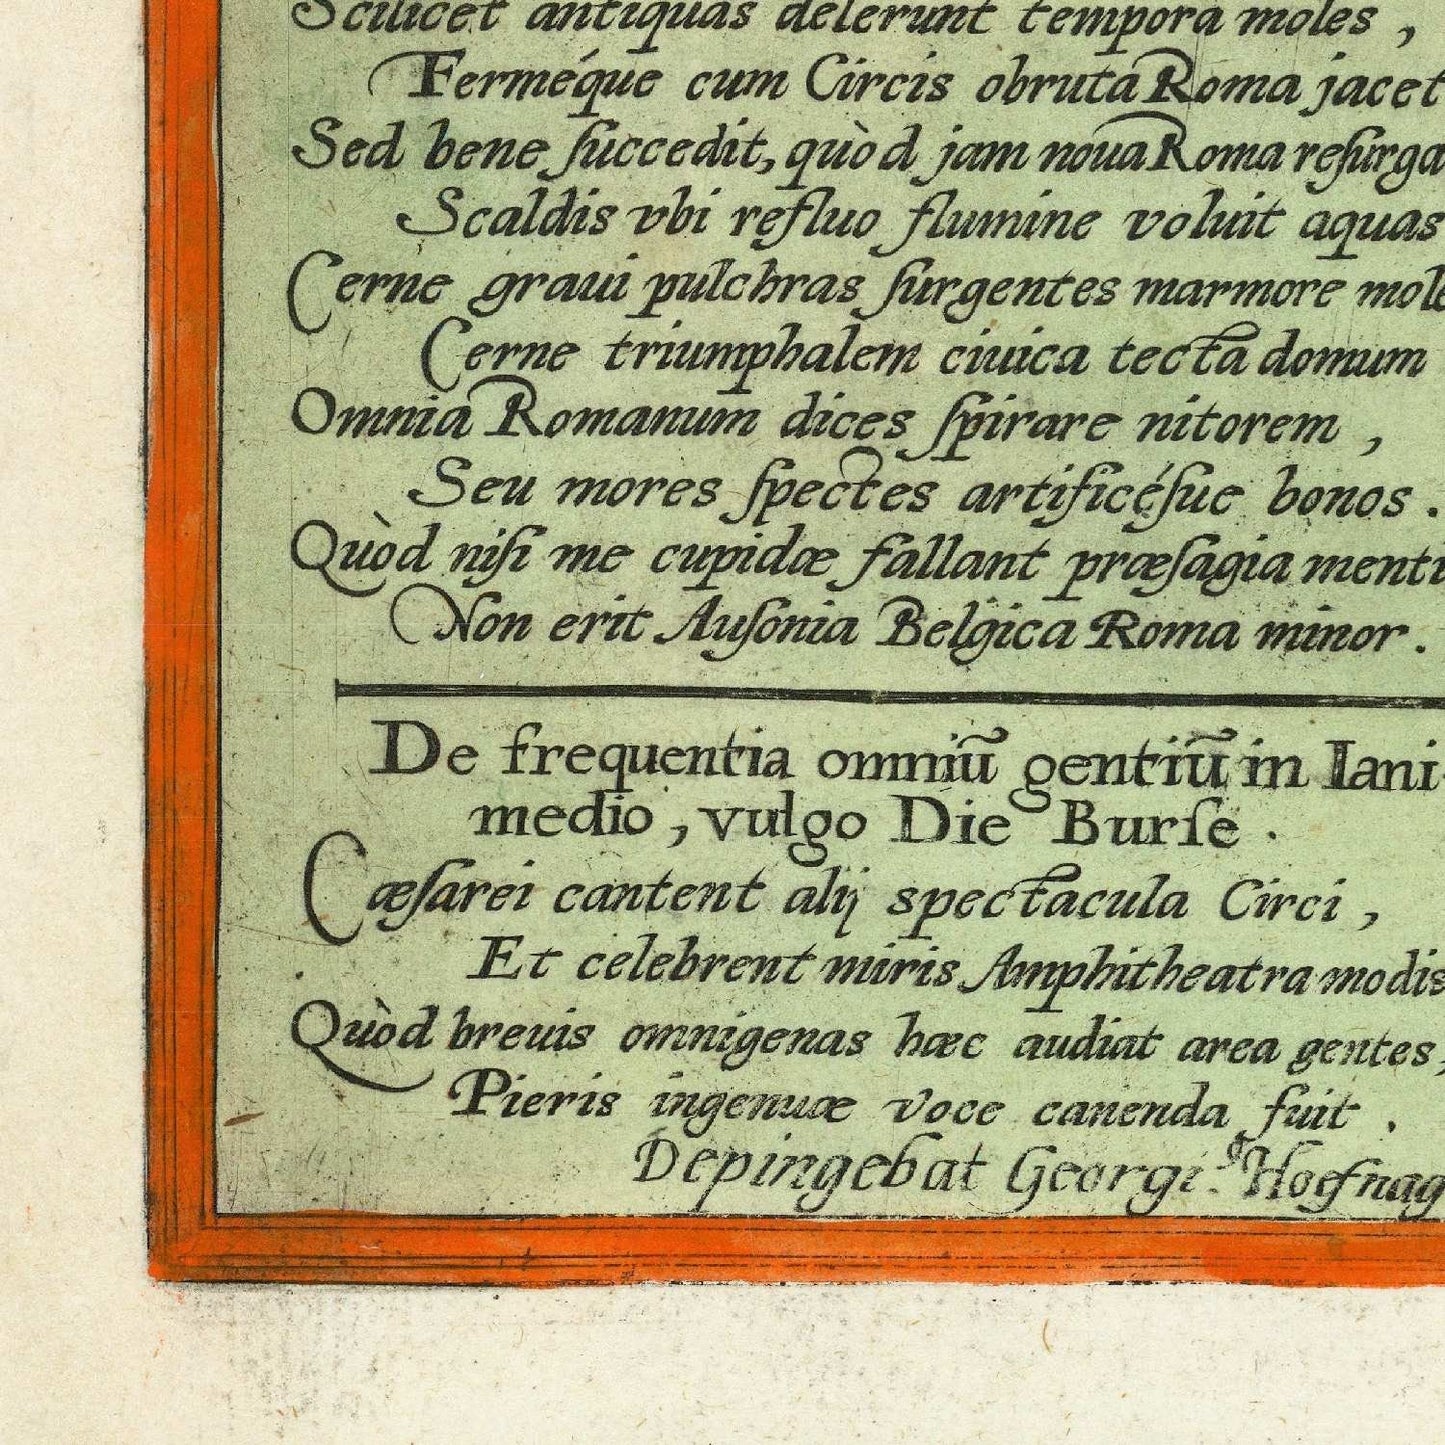 Scilicet antiquas delerunt tempora moles ,
Ferméque cum Circis obruta Roma jacet
Sed bene ſuccedit, quòd jam noua Roma reſurga
Scaldis vbi refluo flumine voluit aquas
Cerne graui pulchras ſurgentes marmore mole
Cerne triumphalem ciuica tecta domum
Omnia Romanum dices ſpirare nitorem ,
Seu mores ſpectes artificéſue bonos .
Quòd niſi me cupidæ fallant præſagia menti
Non erit Auſonia Belgica Roma minor .
De frequentia omniū gentiū in Iani
medio , vulgo Die Burſe .
Cæſarei cantent alij spectacula Circi ,
Et celebrent miris Amphitheatra modis
Quòd breuis omnigenas hæc audiat area gentes,
Pieris ingenuæ voce canenda fuit .
Depingebat Georgi.9 Hoefnag